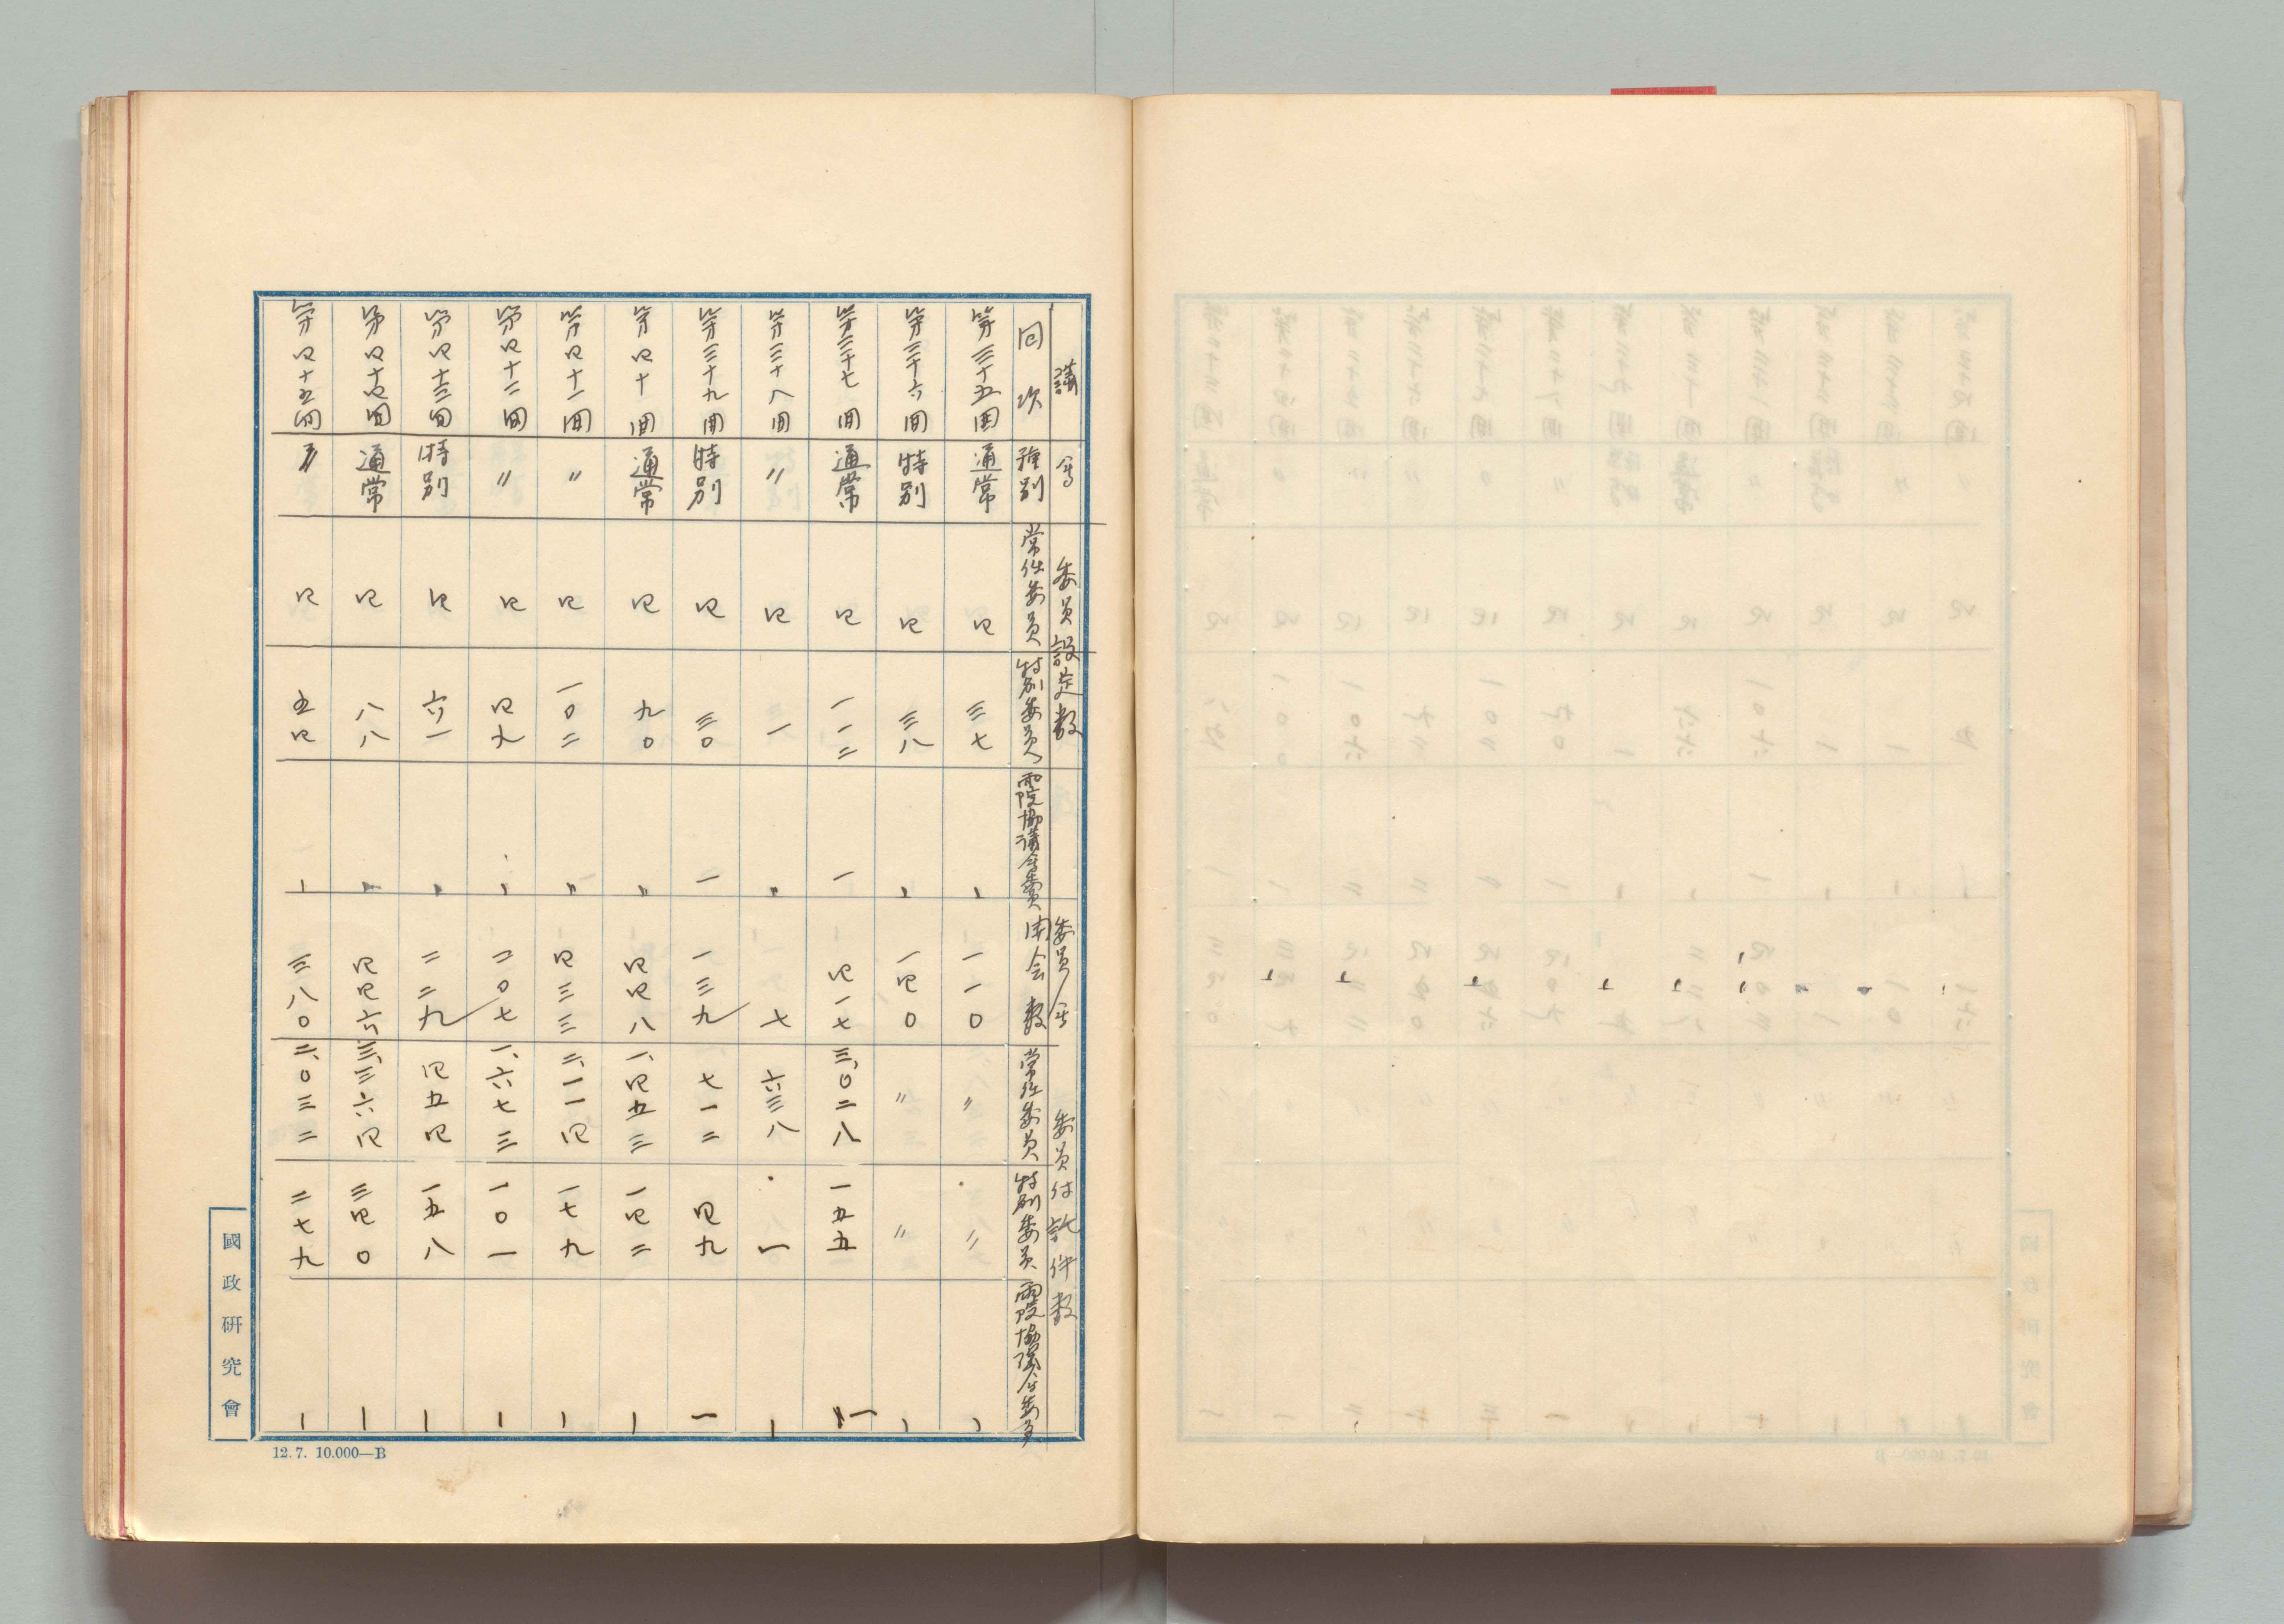 議会 委員設定数 委員会 委員付託件数
回次 種別 常任委員 特別委員 両院協議会委員 開会数 常任委員 特別委員 両院協議会委員
第三十五回 通常 四 三七 一 一一〇 〃 〃 一
第三十六回 特別 四 三八 一 一四〇 〃 〃 一
第三十七回 通常 四 一一二 一 四一七 三、〇二八 一五五 一
第三十八回 〃 四 一 〃 七 六三八 一 一
第三十九回 特別 四 三〇 一 一三九 七一二 四九 一
第四十回 通常 四 九〇 〃 四四八 一、四五三 一四二 一
第四十一回 〃 四 一〇二 〃 四三三 二、一一四 一七九 一
第四十二回 〃 四 四九 一 二〇七 一、六七三 一〇一 一
第四十三回 特別 四 六一 〃 二二九 四五四 一五八 一
第四十四回 通常 四 八八 〃 四四六 三、三六四 三四〇 一
第四十五回 〃 四 五四 一 三八〇 二、〇三二 二七九 一
國政研究會
12.7. 10.000—B